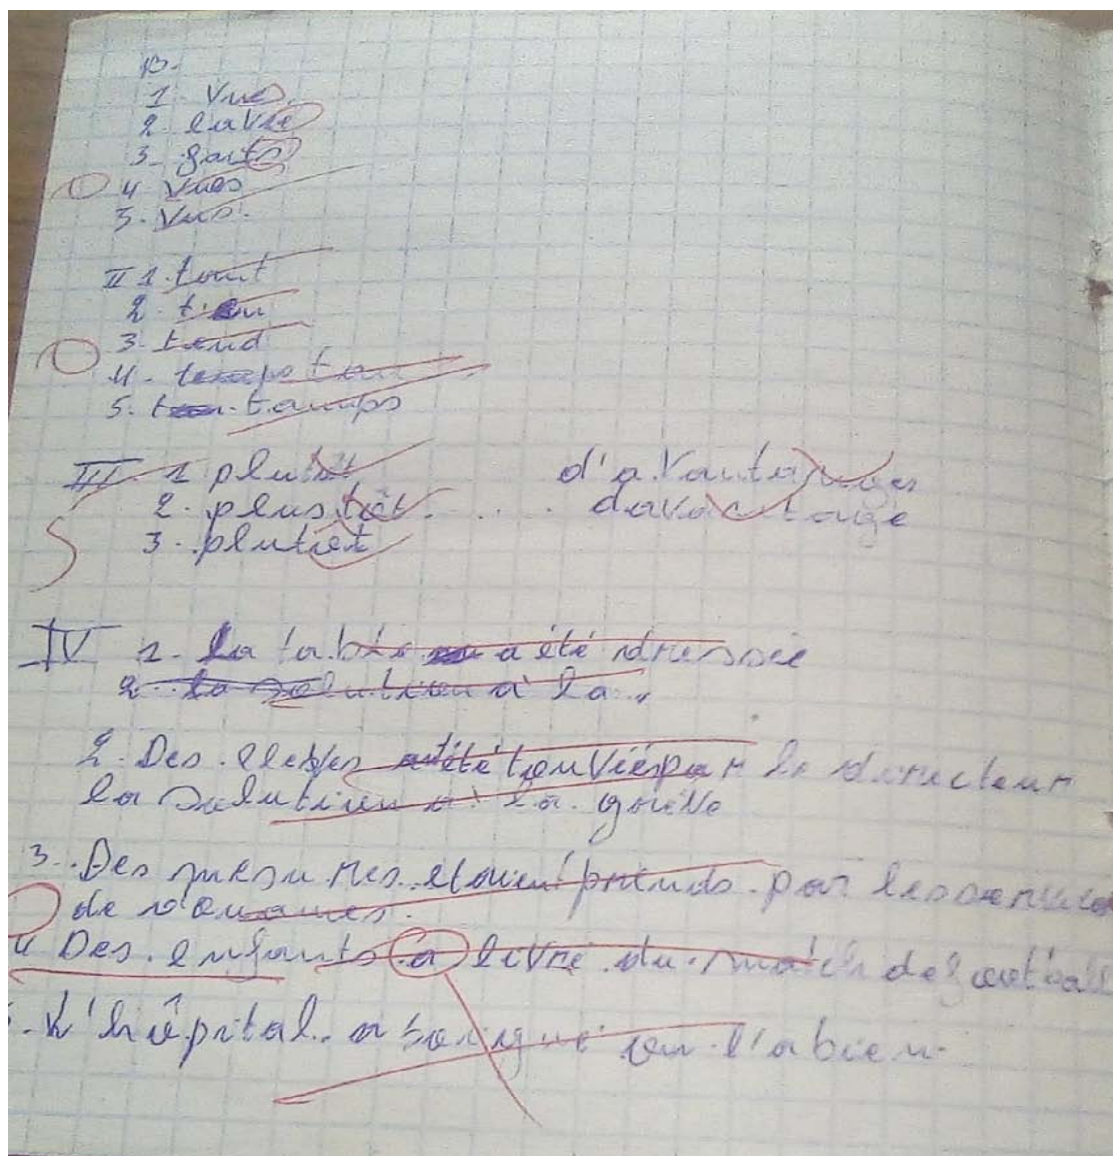 B.
1. Vues.
2. lavée
3. faits
4 Vues
5. Vus.
II 1. tout
2. t
3. tend
4.
5. tamps
III 1 plutôt d'avantages
2. plus tôt. .... davantage
3. plutiot
IV 1. La table a été dressée
2. la solution à la
2. Des eleves été trouviépar le directeur
la solution à la grève
3. Des mesures etaient priends par les
de douanes.
4 Des enfants a livré du match de
5. L'hôpital a soigné on l'a bien